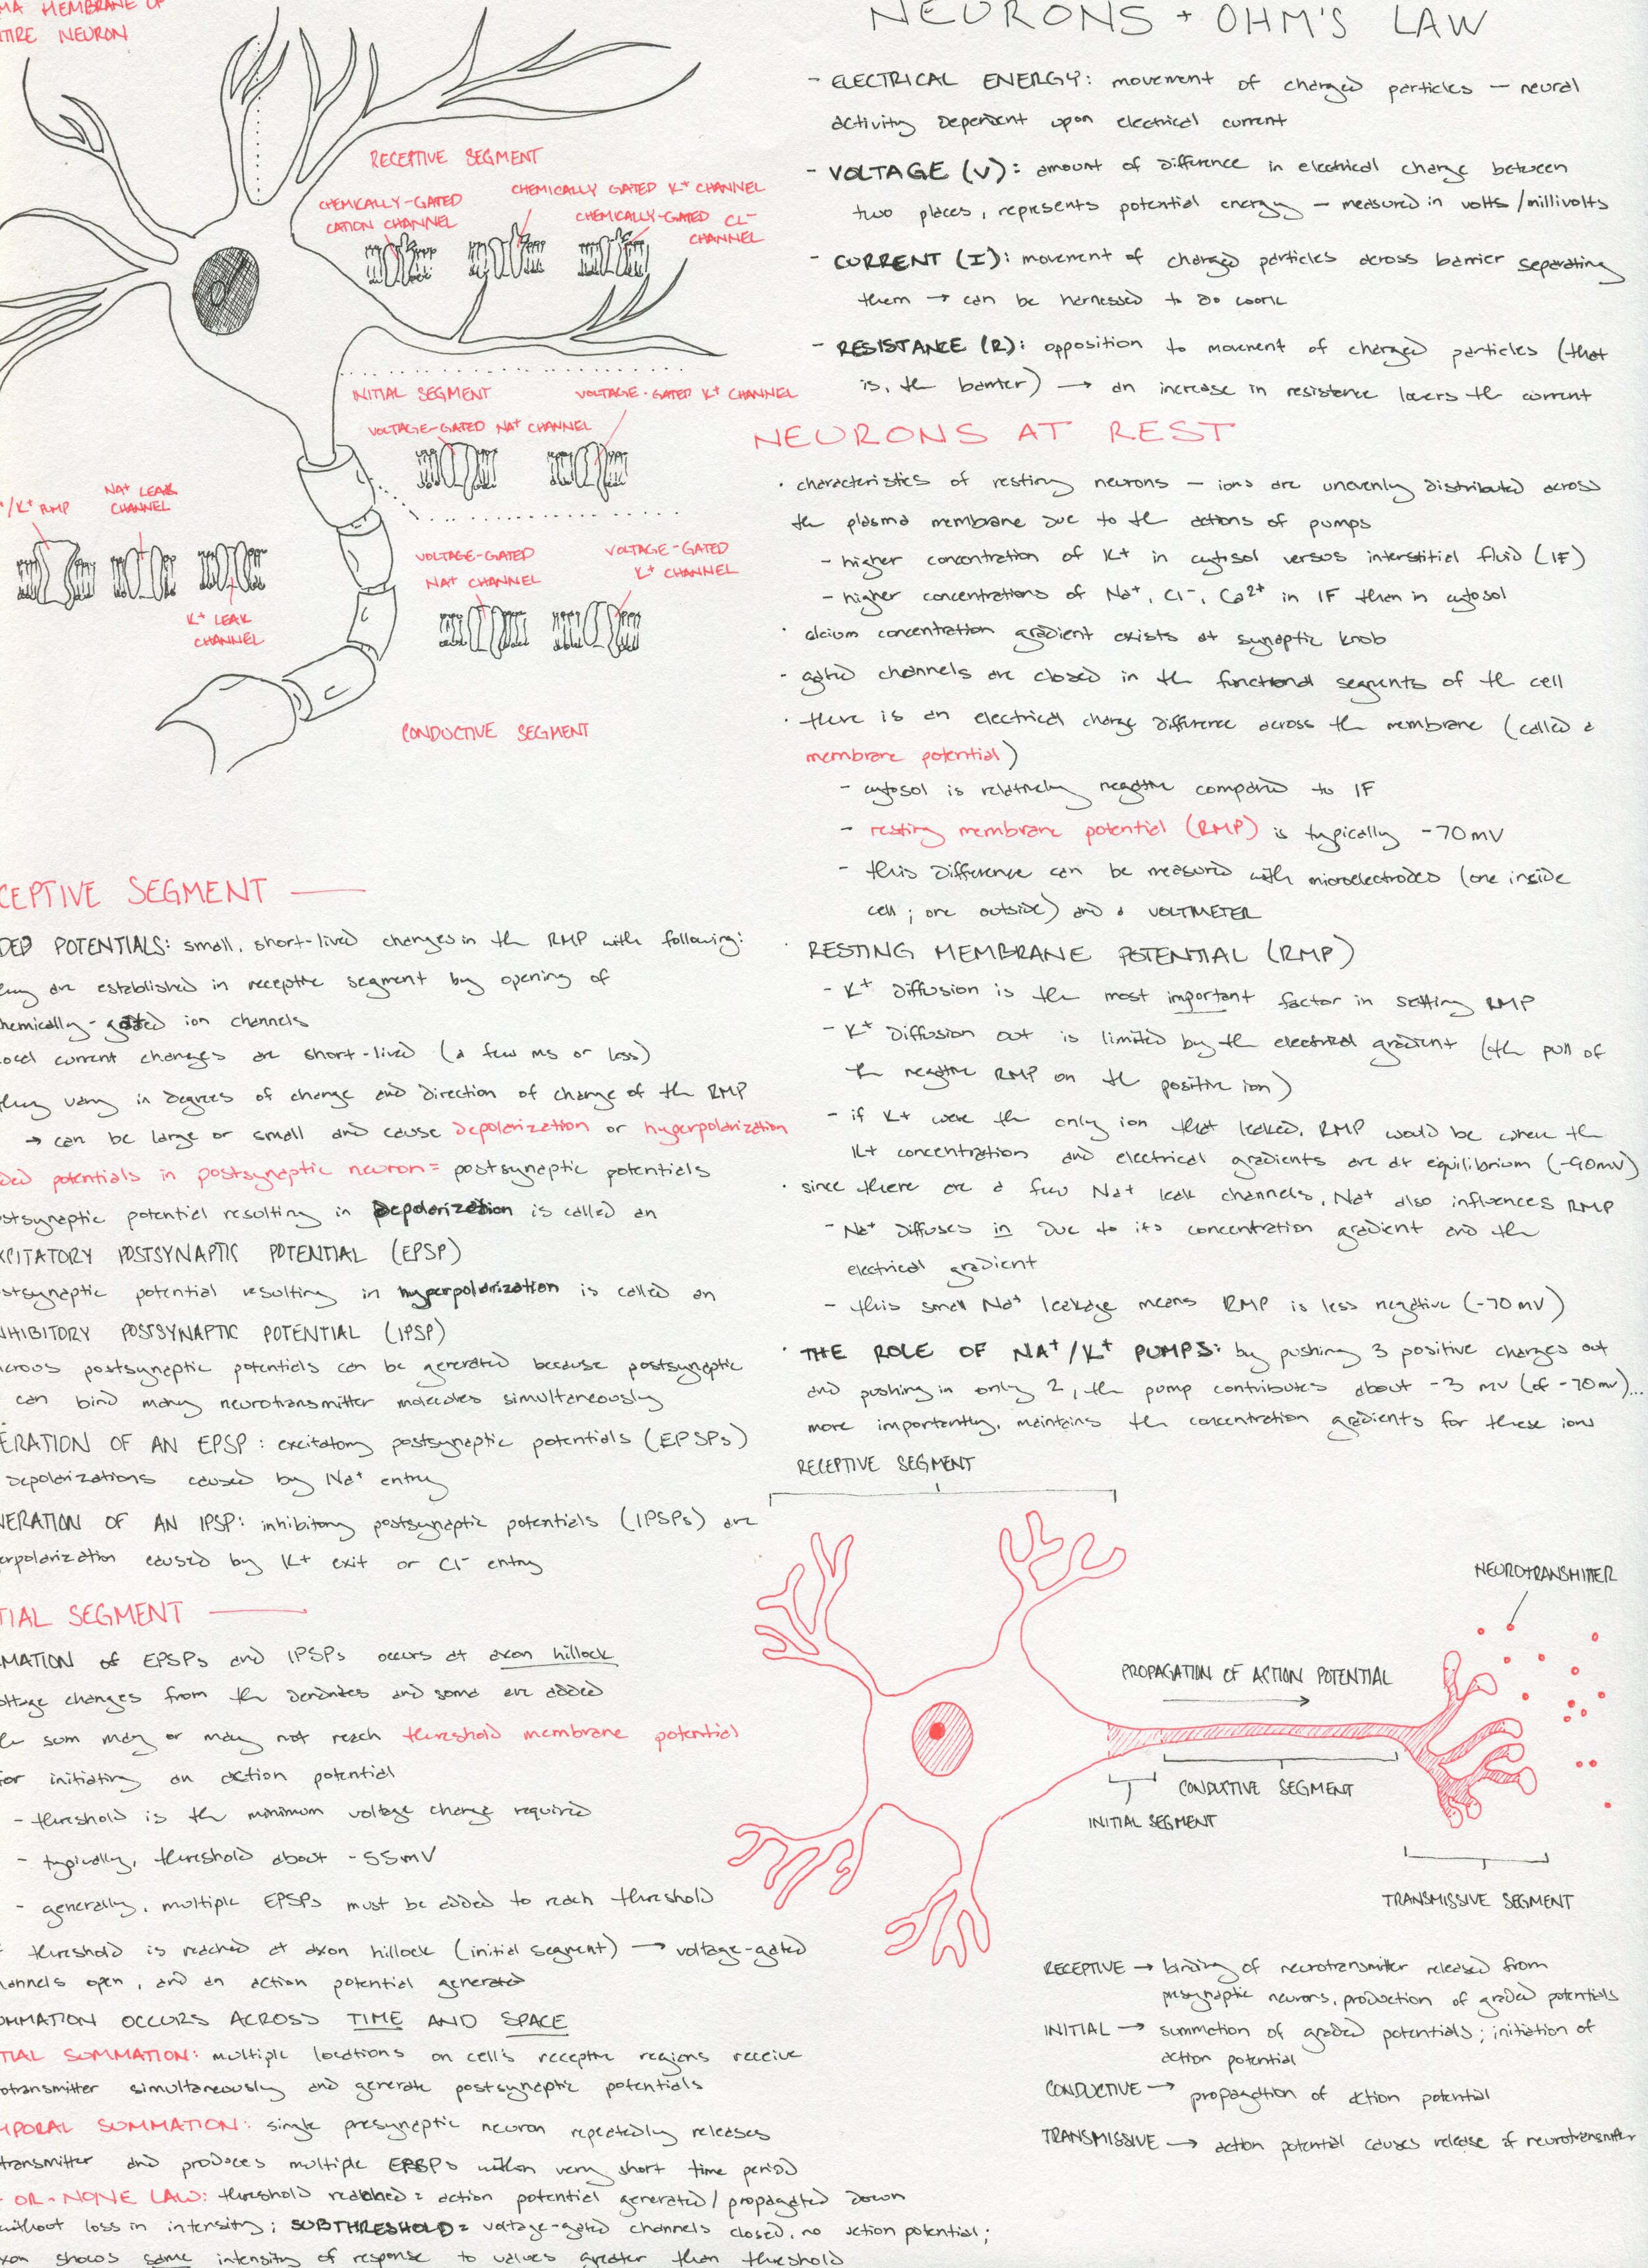 MA MEMBRANE OF
TIRE NEURON
RECEPTIVE SEGMENT
CHEMICALLY-GATED
CATION CHANNEL
CHEMICALLY GATED K+ CHANNEL
CHEMICALLY-GATED CL-
CHANNEL
INITIAL SEGMENT
VOLTAGE-GATED NA+ CHANNEL
VOLTAGE-GATED K+ CHANNEL
+/K+ RMP
NA+ LEAK
CHANNEL
K+ LEAK
CHANNEL
VOLTAGE-GATED
NA+ CHANNEL
VOLTAGE-GATED
K+ CHANNEL
CONDUCTIVE SEGMENT
CEPTIVE SEGMENT —
DED POTENTIALS: small, short-lived changes in the RMP with following:
ey are established in receptive segment by opening of
hemically-gated ion channels
ocal current changes are short-lived (a few ms or less)
they vary in degrees of change and direction of change of the RMP
→ can be large or small and cause depolarization or hyperpolarization
ded potentials in postsynaptic neuron = postsynaptic potentials
stsynaptic potential resulting in depolarization is called an
XCITATORY POSTSYNAPTIC POTENTIAL (EPSP)
stsynaptic potential resulting in hyperpolarization is called an
NHIBITORY POSTSYNAPTIC POTENTIAL (IPSP)
erous postsynaptic potentials can be generated because postsynaptic
can bind many neurotransmitter molecules simultaneously
ERATION OF AN EPSP: excitatory postsynaptic potentials (EPSPs)
depolarizations caused by Na+ entry
NERATION OF AN IPSP: inhibitory postsynaptic potentials (IPSPs) are
erpolarization caused by K+ exit or Cl- entry
TIAL SEGMENT —
MATION of EPSPs and IPSPs occurs at axon hillock
oltage changes from the dendrites and soma are added
e sum may or may not reach threshold membrane potential
for initiating an action potential
- threshold is the minimum voltage change required
- typically, threshold about -55mV
- generally, multiple EPSPs must be added to reach threshold
threshold is reached at axon hillock (initial segment) → voltage-gated
annels open, and an action potential generated
MMATION OCCURS ACROSS TIME AND SPACE
TIAL SUMMATION: multiple locations on cell's receptive regions receive
otransmitter simultaneously and generate postsynaptic potentials
MPORAL SUMMATION: single presynaptic neuron repeatedly releases
transmitter and produces multiple EPSPs within very short time period
-OR-NONE LAW: threshold reached = action potential generated/propagated down
without loss in intensity; SUBTHRESHOLD = voltage-gated channels closed, no action potential;
xon shows same intensity of response to values greater than threshold
NEURONS + OHM'S LAW
- ELECTRICAL ENERGY: movement of charged particles — neural
activity dependent upon electrical current
- VOLTAGE (V): amount of difference in electrical charge between
two places, represents potential energy — measured in volts/millivolts
- CURRENT (I): movement of charged particles across barrier separating
them → can be harnessed to do work
- RESISTANCE (R): opposition to movement of charged particles (that
is, the barrier) → an increase in resistance lowers the current
NEURONS AT REST
· characteristics of resting neurons — ions are unevenly distributed across
the plasma membrane due to the actions of pumps
- higher concentration of K+ in cytosol versus interstitial fluid (IF)
- higher concentrations of Na+, Cl-, Ca2+ in IF than in cytosol
· alcium concentration gradient exists at synaptic knob
- gated channels are closed in the functional segments of the cell
· there is an electrical charge difference across the membrane (called a
membrane potential)
- cytosol is relatively negative compared to IF
- resting membrane potential (RMP) is typically -70mV
- this difference can be measured with microelectrodes (one inside
cell; one outside) and a VOLTMETER
· RESTING MEMBRANE POTENTIAL (RMP)
- K+ diffusion is the most important factor in setting RMP
- K+ diffusion out is limited by the electrical gradient (the pull of
the negative RMP on the positive ion)
- if K+ were the only ion that leaked, RMP would be when the
K+ concentration and electrical gradients are at equilibrium (-90mV)
· since there are a few Na+ leak channels, Na+ also influences RMP
- Na+ diffuses in due to its concentration gradient and the
electrical gradient
- this small Na+ leakage means RMP is less negative (-70 mV)
· THE ROLE OF NA+/K+ PUMPS: by pushing 3 positive charges out
and pushing in only 2, the pump contributes about -3 mV (of -70mV)...
more importantly, maintains the concentration gradients for these ions
RECEPTIVE SEGMENT
NEUROTRANSMITTER
PROPAGATION OF ACTION POTENTIAL
CONDUCTIVE SEGMENT
INITIAL SEGMENT
TRANSMISSIVE SEGMENT
RECEPTIVE → binding of neurotransmitter released from
presynaptic neurons, production of graded potentials
INITIAL → summation of graded potentials; initiation of
action potential
CONDUCTIVE → propagation of action potential
TRANSMISSIVE → action potential causes release of neurotransmitter